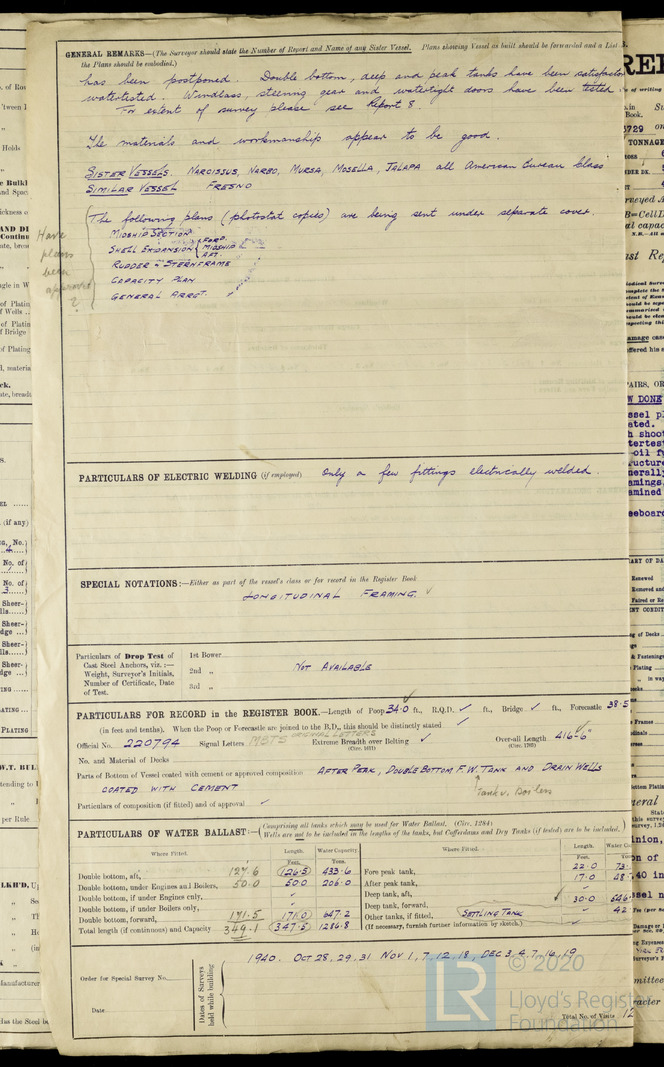 GENERAL REMARKS—(The Surveyor should state the Number of Report and Name of any Sister Vessel. Plans showing Vessel as built should be forwarded and a List
the Plans should be embodied.)
has been postponed. Double bottom, deep and peak tanks have been satisfactor
watertested. Windlass, steering gear and watertight doors have been tested
For extent of survey please see Report 8.
The materials and workmanship appear to be good.
SISTER VESSELS. NARCISSUS, NARBO, MURSA, MOSELLA, JALAPA all American Bureau Class
SIMILAR VESSEL FRESNO
The following plans (photostat copies) are being sent under separate cover.
MIDSHIP SECTION
SHELL EXPANSION FORD MIDSHIP AFT.
RUDDER & STERNFRAME
CAPACITY PLAN
GENERAL ARRGT.
Have
plans
been
approved
?
PARTICULARS OF ELECTRIC WELDING (if employed) Only a few fittings electrically welded.
SPECIAL NOTATIONS:—Either as part of the vessel's class or for record in the Register Book
LONGITUDINAL FRAMING. ✓
Particulars of Drop Test of
Cast Steel Anchors, viz.:—
Weight, Surveyor's Initials,
Number of Certificate, Date
of Test.
1st Bower
2nd „ NOT AVAILABLE
3rd „
PARTICULARS FOR RECORD in the REGISTER BOOK.—Length of Poop 34.0 ft., R.Q.D. ✓ ft., Bridge ✓ ft., Forecastle 38.5
(in feet and tenths). When the Poop or Forecastle are joined to the B.D., this should be distinctly stated ✓
Official No. 220794 Signal Letters MBTS ORIGINAL LETTERS Extreme Breadth over Belting ✓ Over-all Length 416'-6"
(Circ. 1611) (Circ. 1703)
No. and Material of Decks
Parts of Bottom of Vessel coated with cement or approved composition AFTER PEAK, DOUBLE BOTTOM F.W. TANK AND DRAIN WELLS
COATED WITH CEMENT Tank u. Boilers
Particulars of composition (if fitted) and of approval ✓
PARTICULARS OF WATER BALLAST:— (Comprising all tanks which may be used for Water Ballast. (Circ. 1284)
Wells are not to be included in the lengths of the tanks, but Cofferdams and Dry Tanks (if tested) are to be included.)
Where Fitted. Length. Water Capacity Where Fitted. Length. Water Ca
Feet. Tons. Feet. Tons
Double bottom, aft, 127.6 126.5 433.6 Fore peak tank, 22.0 73
Double bottom, under Engines and Boilers, 50.0 50.0 206.0 After peak tank, 17.0 48
Double bottom, if under Engines only, ✓ Deep tank, aft, ✓
Double bottom, if under Boilers only, ✓ Deep tank, forward, 30.0 546
Double bottom, forward, 171.5 171.0 647.2 Other tanks, if fitted, SETTLING TANK ✓ 42
Total length (if continuous) and Capacity 349.1 347.5 1286.8 (If necessary, furnish further information by sketch.) ✓
Order for Special Survey No.
Date
Dates of Surveys
held while building
1940. OCT 28, 29, 31 NOV 1, 7, 12, 18, DEC 3, 4, 7, 16, 19
Total No. of Visits 12
© 2020
Lloyd's Regist
Foundation